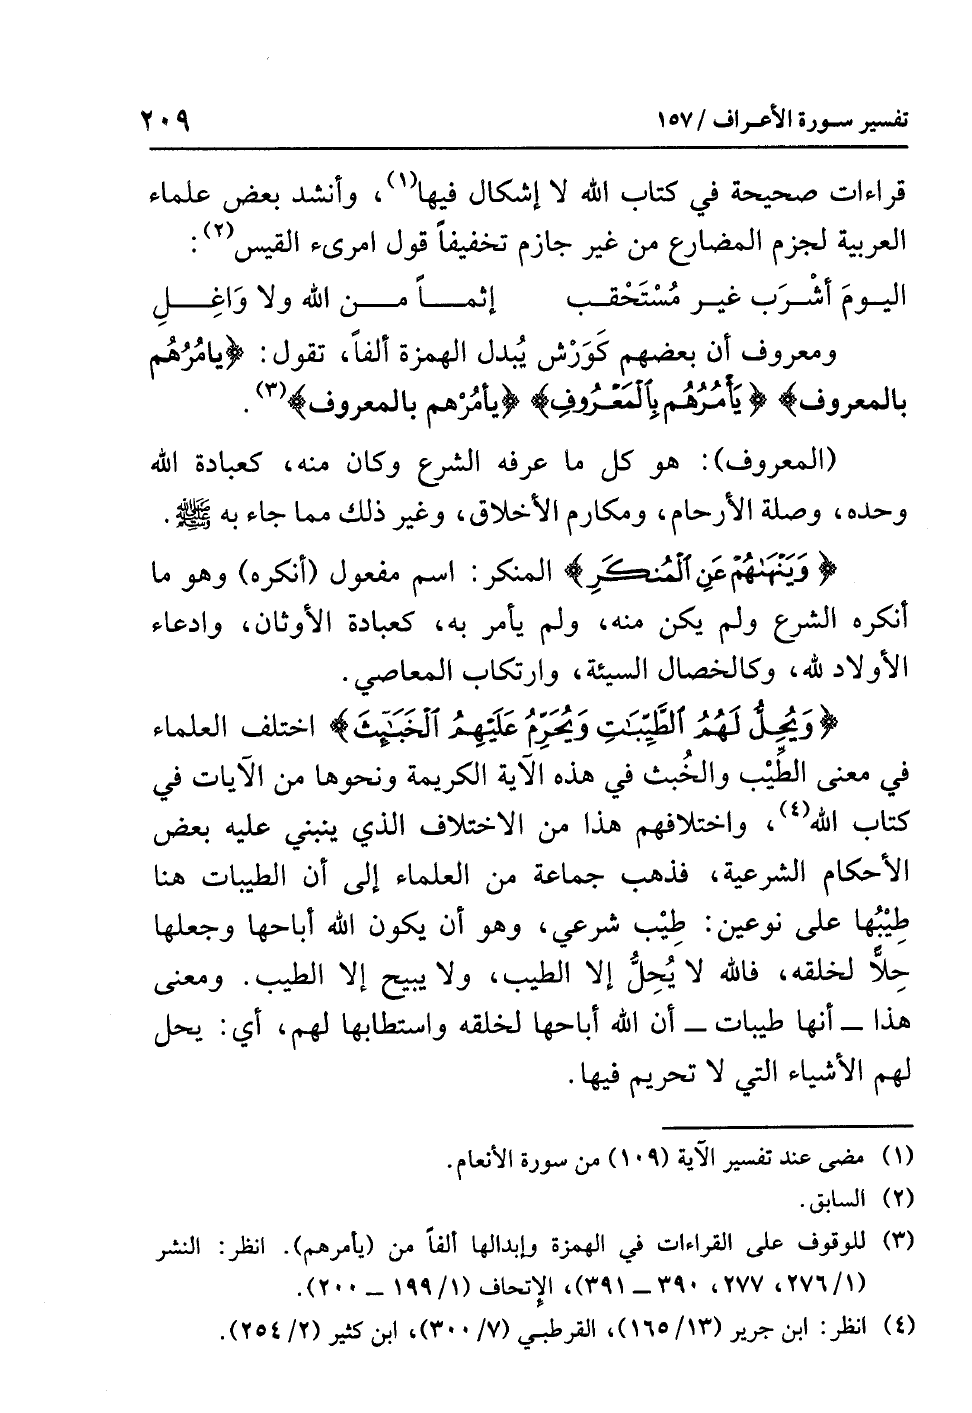 تفسير سورة الأعراف / ١٥٧ ٢٠٩
قراءات صحيحة في كتاب الله لا إشكال فيها(١)، وأنشد بعض علماء
العربية لجزم المضارع من غير جازم تخفيفاً قول امرىء القيس(٢):
اليومَ أشْرَب غير مُسْتَحْقب إثماً من الله ولا وَاغِلِ
ومعروف أن بعضهم كَوَرْش يُبدل الهمزة ألفاً، تقول: ﴿يامُرُهُم
بالمعروف﴾ ﴿يَأْمُرُهُم بِٱلْمَعْرُوفِ﴾ ﴿يأمُرْهم بالمعروف﴾(٣).
(المعروف): هو كل ما عرفه الشرع وكان منه، كعبادة الله
وحده، وصلة الأرحام، ومكارم الأخلاق، وغير ذلك مما جاء به ﷺ.
﴿وَيَنْهَىٰهُمْ عَنِ ٱلْمُنكَرِ﴾ المنكر: اسم مفعول (أنكره) وهو ما
أنكره الشرع ولم يكن منه، ولم يأمر به، كعبادة الأوثان، وادعاء
الأولاد لله، وكالخصال السيئة، وارتكاب المعاصي.
﴿وَيُحِلُّ لَهُمُ ٱلطَّيِّبَٰتِ وَيُحَرِّمُ عَلَيْهِمُ ٱلْخَبَٰٓئِثَ﴾ اختلف العلماء
في معنى الطِّيْب والخُبث في هذه الآية الكريمة ونحوها من الآيات في
كتاب الله(٤)، واختلافهم هذا من الاختلاف الذي ينبني عليه بعض
الأحكام الشرعية، فذهب جماعة من العلماء إلى أن الطيبات هنا
طِيْبُها على نوعين: طِيْب شرعي، وهو أن يكون الله أباحها وجعلها
حِلاًّ لخلقه، فالله لا يُحِلُّ إلا الطيب، ولا يبيح إلا الطيب. ومعنى
هذا ــ أنها طيبات ــ أن الله أباحها لخلقه واستطابها لهم، أي: يحل
لهم الأشياء التي لا تحريم فيها.
(١) مضى عند تفسير الآية (١٠٩) من سورة الأنعام.
(٢) السابق.
(٣) للوقوف على القراءات في الهمزة وإبدالها ألفاً من (يأمرهم). انظر: النشر
(١/ ٢٧٦، ٢٧٧، ٣٩٠ ــ ٣٩١)، الإتحاف (١/ ١٩٩ ــ ٢٠٠).
(٤) انظر: ابن جرير (١٣/ ١٦٥)، القرطبي (٧/ ٣٠٠)، ابن كثير (٢/ ٢٥٤).